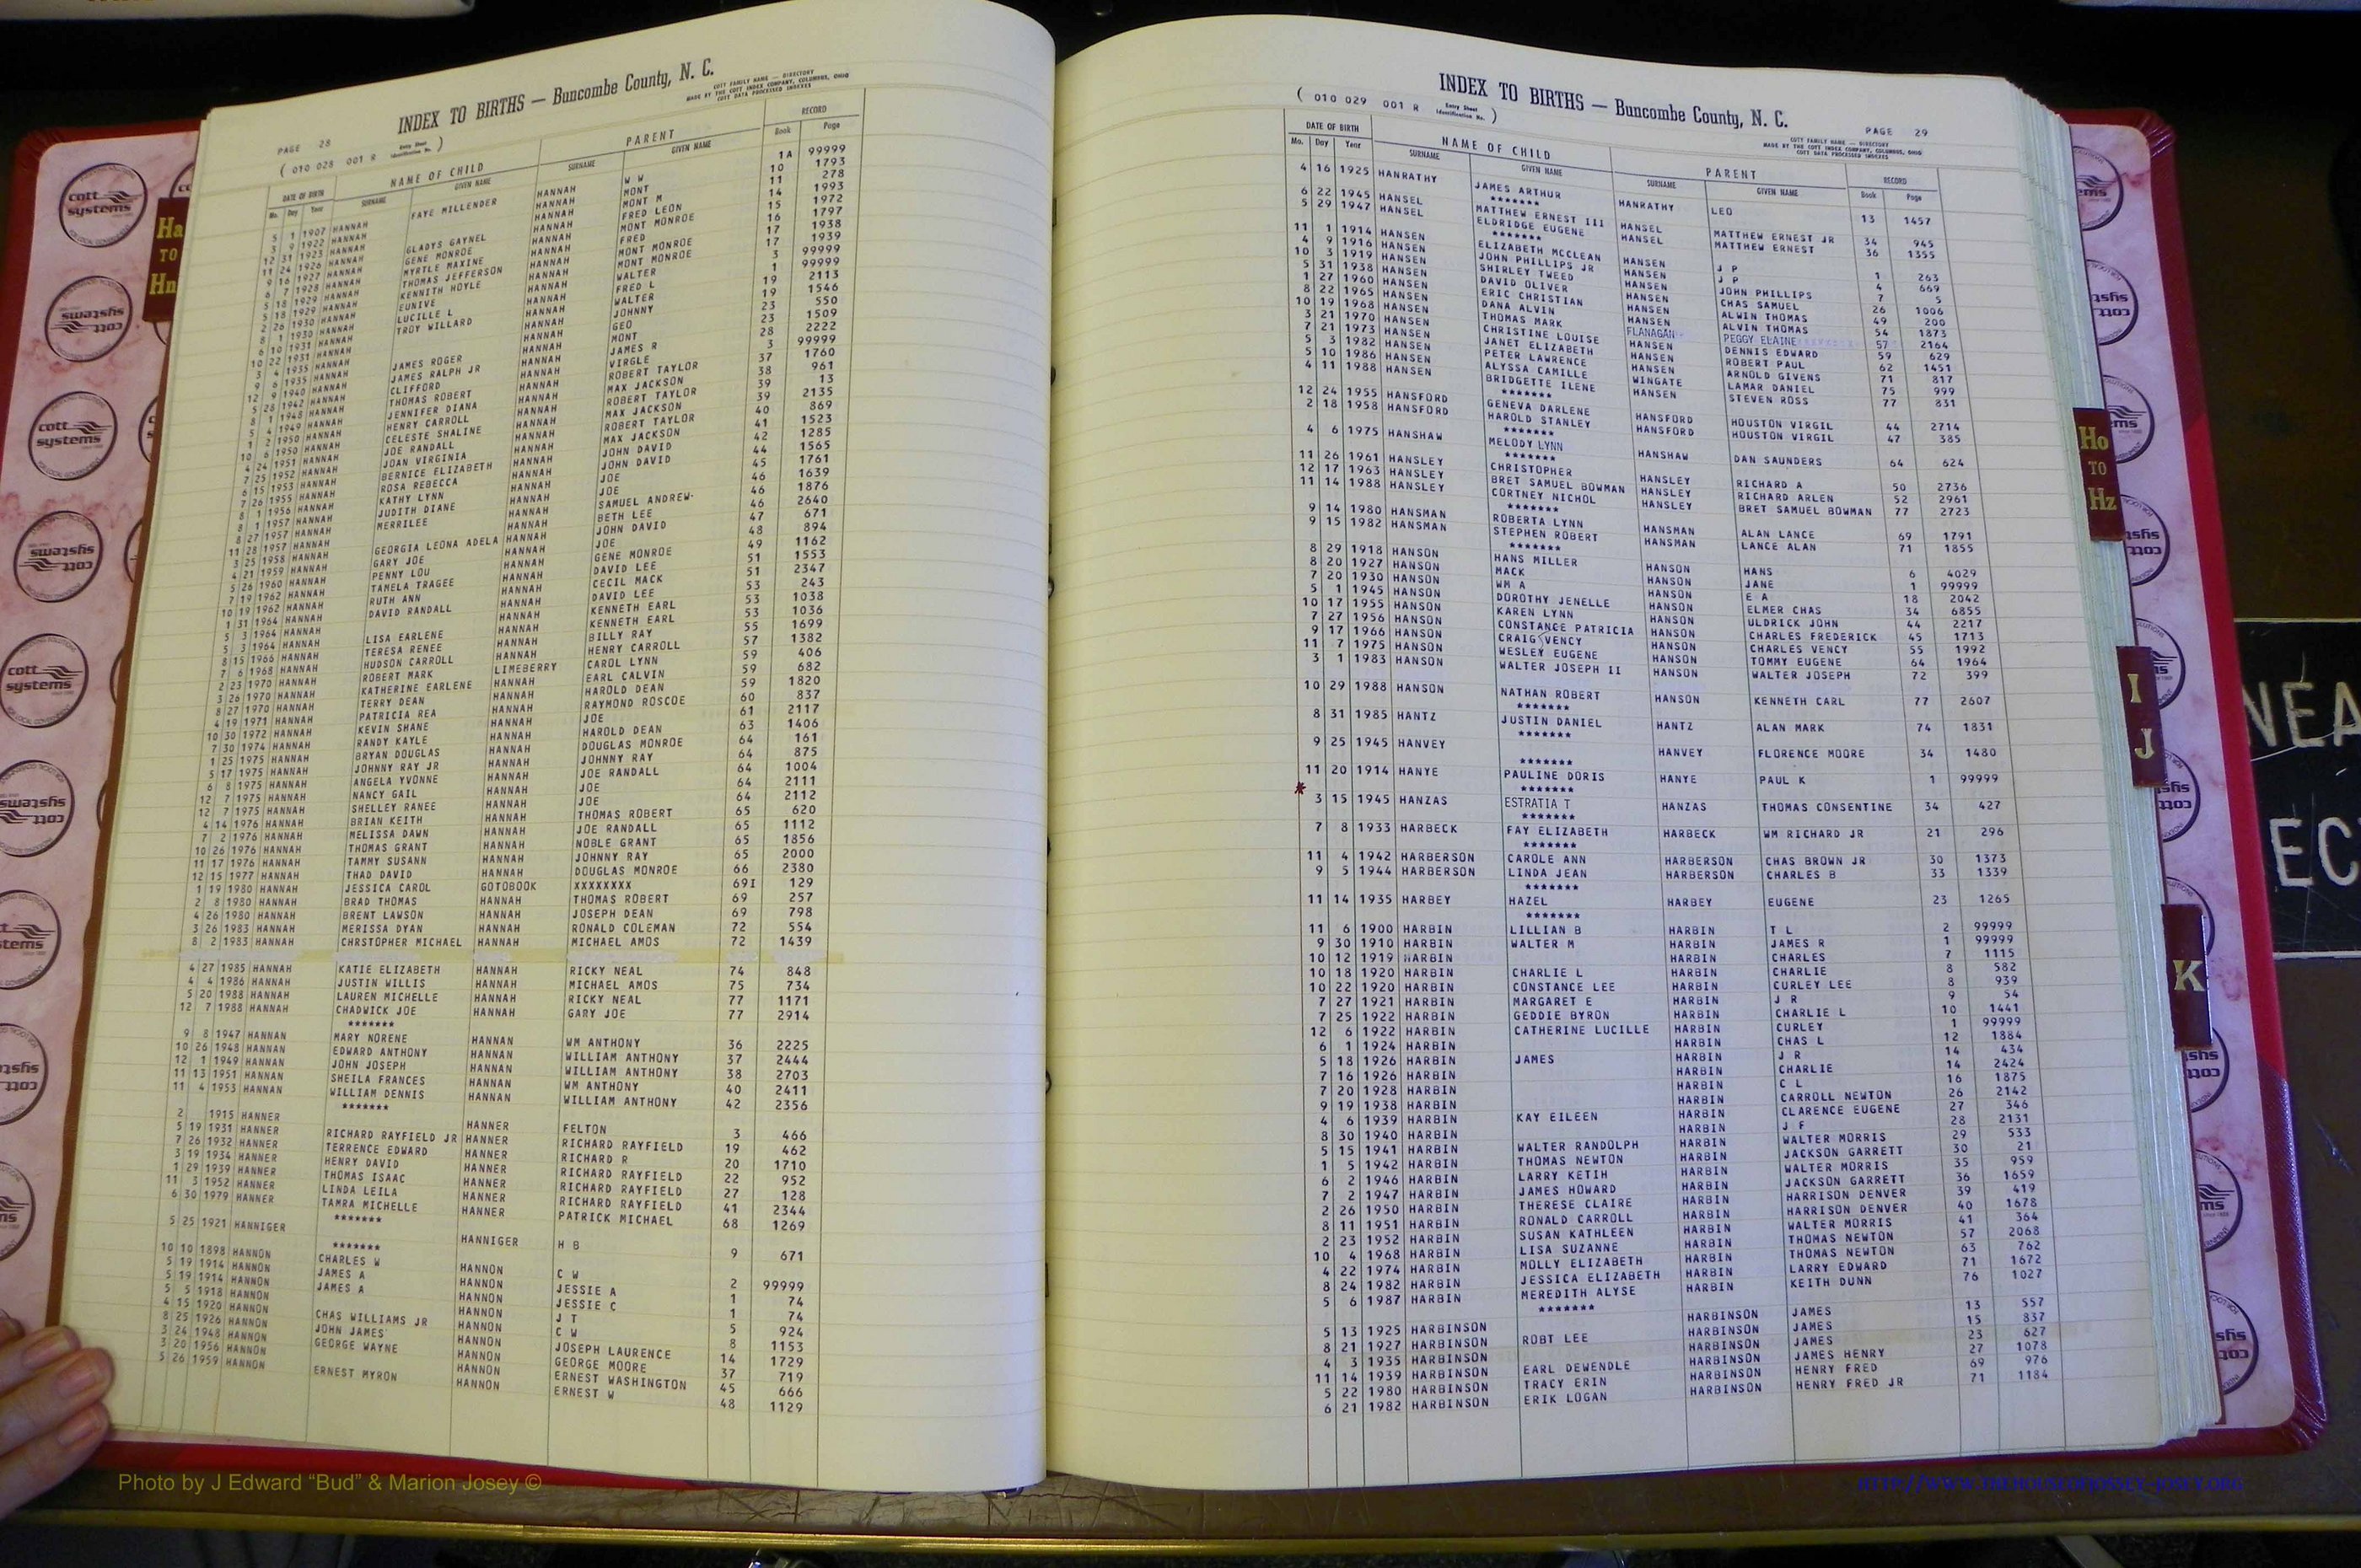 PAGE 28
INDEX TO BIRTHS — Buncombe County, N. C.
COTT FAMILY NAME — DIRECTORY
MADE BY THE COTT INDEX COMPANY, COLUMBUS, OHIO
COTT DATA PROCESSED INDEXES
( 010 028 001 R Entry Sheet Identification No. )
DATE OF BIRTH NAME OF CHILD PARENT RECORD
Mo. Day Year SURNAME GIVEN NAME SURNAME GIVEN NAME Book Page
5 1 1907 HANNAH FAYE MILLENDER HANNAH W W 1A 99999
3 9 1922 HANNAH HANNAH MONT 10 1793
12 31 1923 HANNAH HANNAH MONT M 11 278
11 24 1926 HANNAH GLADYS GAYNEL HANNAH FRED LEON 14 1993
9 16 1927 HANNAH GENE MONROE HANNAH MONT MONROE 15 1972
6 7 1928 HANNAH MYRTLE MAXINE HANNAH FRED 16 1797
5 18 1929 HANNAH THOMAS JEFFERSON HANNAH MONT MONROE 17 1938
5 18 1929 HANNAH KENNITH HOYLE HANNAH MONT MONROE 17 1939
2 26 1930 HANNAH EUNIVE HANNAH WALTER 3 99999
8 1 1930 HANNAH LUCILLE L HANNAH FRED L 1 99999
6 10 1931 HANNAH TROY WILLARD HANNAH WALTER 19 2113
10 22 1931 HANNAH HANNAH JOHNNY 19 1546
3 4 1935 HANNAH HANNAH GEO 23 550
9 6 1935 HANNAH JAMES ROGER HANNAH MONT 23 1509
12 9 1940 HANNAH JAMES RALPH JR HANNAH JAMES R 28 2222
5 28 1942 HANNAH CLIFFORD HANNAH VIRGLE 3 99999
8 1 1948 HANNAH THOMAS ROBERT HANNAH ROBERT TAYLOR 37 1760
5 4 1949 HANNAH JENNIFER DIANA HANNAH MAX JACKSON 38 961
1 2 1950 HANNAH HENRY CARROLL HANNAH ROBERT TAYLOR 39 13
10 6 1950 HANNAH CELESTE SHALINE HANNAH MAX JACKSON 39 2135
4 24 1951 HANNAH JOE RANDALL HANNAH ROBERT TAYLOR 40 869
7 25 1952 HANNAH JOAN VIRGINIA HANNAH MAX JACKSON 41 1523
6 15 1953 HANNAH BERNICE ELIZABETH HANNAH JOHN DAVID 42 1285
7 26 1955 HANNAH ROSA REBECCA HANNAH JOHN DAVID 44 1565
8 1 1956 HANNAH KATHY LYNN HANNAH JOE 45 1761
8 1 1957 HANNAH JUDITH DIANE HANNAH JOE 46 1639
8 27 1957 HANNAH MERRILEE HANNAH SAMUEL ANDREW 46 1876
11 28 1957 HANNAH HANNAH BETH LEE 46 2640
3 25 1958 HANNAH GEORGIA LEONA ADELA HANNAH JOHN DAVID 47 671
4 21 1959 HANNAH GARY JOE HANNAH JOE 48 894
5 26 1960 HANNAH PENNY LOU HANNAH GENE MONROE 49 1162
7 19 1962 HANNAH TAMELA TRAGEE HANNAH DAVID LEE 51 1553
10 19 1962 HANNAH RUTH ANN HANNAH CECIL MACK 51 2347
1 31 1964 HANNAH DAVID RANDALL HANNAH DAVID LEE 53 243
5 3 1964 HANNAH HANNAH KENNETH EARL 53 1038
5 3 1964 HANNAH LISA EARLENE HANNAH KENNETH EARL 53 1036
8 15 1966 HANNAH TERESA RENEE HANNAH BILLY RAY 55 1699
7 6 1968 HANNAH HUDSON CARROLL HANNAH HENRY CARROLL 57 1382
2 23 1970 HANNAH ROBERT MARK LIMEBERRY CAROL LYNN 59 406
3 26 1970 HANNAH KATHERINE EARLENE HANNAH EARL CALVIN 59 682
8 27 1970 HANNAH TERRY DEAN HANNAH HAROLD DEAN 59 1820
4 19 1971 HANNAH PATRICIA REA HANNAH RAYMOND ROSCOE 60 837
10 30 1972 HANNAH KEVIN SHANE HANNAH JOE 61 2117
7 30 1974 HANNAH RANDY KAYLE HANNAH HAROLD DEAN 63 1406
1 25 1975 HANNAH BRYAN DOUGLAS HANNAH DOUGLAS MONROE 64 161
5 17 1975 HANNAH JOHNNY RAY JR HANNAH JOHNNY RAY 64 875
6 8 1975 HANNAH ANGELA YVONNE HANNAH JOE RANDALL 64 1004
12 7 1975 HANNAH NANCY GAIL HANNAH JOE 64 2111
12 7 1975 HANNAH SHELLEY RANEE HANNAH JOE 64 2112
4 14 1976 HANNAH BRIAN KEITH HANNAH THOMAS ROBERT 65 620
7 2 1976 HANNAH MELISSA DAWN HANNAH JOE RANDALL 65 1112
10 26 1976 HANNAH THOMAS GRANT HANNAH NOBLE GRANT 65 1856
11 17 1976 HANNAH TAMMY SUSANN HANNAH JOHNNY RAY 65 2000
12 15 1977 HANNAH THAD DAVID HANNAH DOUGLAS MONROE 66 2380
1 19 1980 HANNAH JESSICA CAROL GOTOBOOK XXXXXXXX 69I 129
2 8 1980 HANNAH BRAD THOMAS HANNAH THOMAS ROBERT 69 257
4 26 1980 HANNAH BRENT LAWSON HANNAH JOSEPH DEAN 69 798
3 26 1983 HANNAH MERISSA DYAN HANNAH RONALD COLEMAN 72 554
8 2 1983 HANNAH CHRSTOPHER MICHAEL HANNAH MICHAEL AMOS 72 1439
4 27 1985 HANNAH KATIE ELIZABETH HANNAH RICKY NEAL 74 848
4 4 1986 HANNAH JUSTIN WILLIS HANNAH MICHAEL AMOS 75 734
5 20 1988 HANNAH LAUREN MICHELLE HANNAH RICKY NEAL 77 1171
12 7 1988 HANNAH CHADWICK JOE HANNAH GARY JOE 77 2914
*******
9 8 1947 HANNAN MARY NORENE HANNAN WM ANTHONY 36 2225
10 26 1948 HANNAN EDWARD ANTHONY HANNAN WILLIAM ANTHONY 37 2444
12 1 1949 HANNAN JOHN JOSEPH HANNAN WILLIAM ANTHONY 38 2703
11 13 1951 HANNAN SHEILA FRANCES HANNAN WM ANTHONY 40 2411
11 4 1953 HANNAN WILLIAM DENNIS HANNAN WILLIAM ANTHONY 42 2356
*******
2 1915 HANNER HANNER FELTON 3 466
5 19 1931 HANNER RICHARD RAYFIELD JR HANNER RICHARD RAYFIELD 19 462
7 26 1932 HANNER TERRENCE EDWARD HANNER RICHARD R 20 1710
3 19 1934 HANNER HENRY DAVID HANNER RICHARD RAYFIELD 22 952
1 29 1939 HANNER THOMAS ISAAC HANNER RICHARD RAYFIELD 27 128
11 3 1952 HANNER LINDA LEILA HANNER RICHARD RAYFIELD 41 2344
6 30 1979 HANNER TAMRA MICHELLE HANNER PATRICK MICHAEL 68 1269
*******
5 25 1921 HANNIGER HANNIGER H B 9 671
*******
10 10 1898 HANNON CHARLES W HANNON C W 2 99999
5 19 1914 HANNON JAMES A HANNON JESSIE A 1 74
5 19 1914 HANNON JAMES A HANNON JESSIE C 1 74
5 5 1918 HANNON HANNON J T 5 924
4 15 1920 HANNON CHAS WILLIAMS JR HANNON C W 8 1153
8 25 1926 HANNON JOHN JAMES HANNON JOSEPH LAURENCE 14 1729
3 24 1948 HANNON GEORGE WAYNE HANNON GEORGE MOORE 37 719
3 20 1956 HANNON HANNON ERNEST WASHINGTON 45 666
5 26 1959 HANNON ERNEST MYRON HANNON ERNEST W 48 1129
( 010 029 001 R Entry Sheet Identification No. )
INDEX TO BIRTHS — Buncombe County, N. C.
PAGE 29
COTT FAMILY NAME — DIRECTORY
MADE BY THE COTT INDEX COMPANY, COLUMBUS, OHIO
COTT DATA PROCESSED INDEXES
DATE OF BIRTH NAME OF CHILD PARENT RECORD
Mo. Day Year SURNAME GIVEN NAME SURNAME GIVEN NAME Book Page
4 16 1925 HANRATHY JAMES ARTHUR HANRATHY LEO 13 1457
*******
6 22 1945 HANSEL MATTHEW ERNEST III HANSEL MATTHEW ERNEST JR 34 945
5 29 1947 HANSEL ELDRIDGE EUGENE HANSEL MATTHEW ERNEST 36 1355
*******
11 1 1914 HANSEN ELIZABETH MCCLEAN HANSEN J P 1 263
4 9 1916 HANSEN JOHN PHILLIPS JR HANSEN J P 4 669
10 3 1919 HANSEN SHIRLEY TWEED HANSEN JOHN PHILLIPS 7 5
5 31 1938 HANSEN DAVID OLIVER HANSEN CHAS SAMUEL 26 1006
1 27 1960 HANSEN ERIC CHRISTIAN HANSEN ALWIN THOMAS 49 200
8 22 1965 HANSEN DANA ALVIN HANSEN ALVIN THOMAS 54 1873
10 19 1968 HANSEN THOMAS MARK FLANAGAN PEGGY ELAINE 57 2164
3 21 1970 HANSEN CHRISTINE LOUISE HANSEN DENNIS EDWARD 59 629
7 21 1973 HANSEN JANET ELIZABETH HANSEN ROBERT PAUL 62 1451
5 3 1982 HANSEN PETER LAWRENCE HANSEN ARNOLD GIVENS 71 817
5 10 1986 HANSEN ALYSSA CAMILLE WINGATE LAMAR DANIEL 75 999
4 11 1988 HANSEN BRIDGETTE ILENE HANSEN STEVEN ROSS 77 831
*******
12 24 1955 HANSFORD GENEVA DARLENE HANSFORD HOUSTON VIRGIL 44 2714
2 18 1958 HANSFORD HAROLD STANLEY HANSFORD HOUSTON VIRGIL 47 385
*******
4 6 1975 HANSHAW MELODY LYNN HANSHAW DAN SAUNDERS 64 624
*******
11 26 1961 HANSLEY CHRISTOPHER HANSLEY RICHARD A 50 2736
12 17 1963 HANSLEY BRET SAMUEL BOWMAN HANSLEY RICHARD ARLEN 52 2961
11 14 1988 HANSLEY CORTNEY NICHOL HANSLEY BRET SAMUEL BOWMAN 77 2723
*******
9 14 1980 HANSMAN ROBERTA LYNN HANSMAN ALAN LANCE 69 1791
9 15 1982 HANSMAN STEPHEN ROBERT HANSMAN LANCE ALAN 71 1855
*******
8 29 1918 HANSON HANS MILLER HANSON HANS 6 4029
8 20 1927 HANSON MACK HANSON JANE 1 99999
7 20 1930 HANSON WM A HANSON E A 18 2042
5 1 1945 HANSON DOROTHY JENELLE HANSON ELMER CHAS 34 6855
10 17 1955 HANSON KAREN LYNN HANSON ULDRICK JOHN 44 2217
7 27 1956 HANSON CONSTANCE PATRICIA HANSON CHARLES FREDERICK 45 1713
9 17 1966 HANSON CRAIG VENCY HANSON CHARLES VENCY 55 1992
11 7 1975 HANSON WESLEY EUGENE HANSON TOMMY EUGENE 64 1964
3 1 1983 HANSON WALTER JOSEPH II HANSON WALTER JOSEPH 72 399
10 29 1988 HANSON NATHAN ROBERT HANSON KENNETH CARL 77 2607
*******
8 31 1985 HANTZ JUSTIN DANIEL HANTZ ALAN MARK 74 1831
*******
9 25 1945 HANVEY HANVEY FLORENCE MOORE 34 1480
*******
11 20 1914 HANYE PAULINE DORIS HANYE PAUL K 1 99999
*******
* 3 15 1945 HANZAS ESTRATIA T HANZAS THOMAS CONSENTINE 34 427
*******
7 8 1933 HARBECK FAY ELIZABETH HARBECK WM RICHARD JR 21 296
*******
11 4 1942 HARBERSON CAROLE ANN HARBERSON CHAS BROWN JR 30 1373
9 5 1944 HARBERSON LINDA JEAN HARBERSON CHARLES B 33 1339
*******
11 14 1935 HARBEY HAZEL HARBEY EUGENE 23 1265
*******
11 6 1900 HARBIN LILLIAN B HARBIN T L 2 99999
9 30 1910 HARBIN WALTER M HARBIN JAMES R 1 99999
10 12 1919 HARBIN HARBIN CHARLES 7 1115
10 18 1920 HARBIN CHARLIE L HARBIN CHARLIE 8 582
10 22 1920 HARBIN CONSTANCE LEE HARBIN CURLEY LEE 8 939
7 27 1921 HARBIN MARGARET E HARBIN J R 9 54
7 25 1922 HARBIN GEDDIE BYRON HARBIN CHARLIE L 10 1441
12 6 1922 HARBIN CATHERINE LUCILLE HARBIN CURLEY 1 99999
6 1 1924 HARBIN HARBIN CHAS L 12 1884
5 18 1926 HARBIN JAMES HARBIN J R 14 434
7 16 1926 HARBIN HARBIN CHARLIE 14 2424
7 20 1928 HARBIN HARBIN C L 16 1875
9 19 1938 HARBIN HARBIN CARROLL NEWTON 26 2142
4 6 1939 HARBIN KAY EILEEN HARBIN CLARENCE EUGENE 27 346
8 30 1940 HARBIN HARBIN J F 28 2131
5 15 1941 HARBIN WALTER RANDOLPH HARBIN WALTER MORRIS 29 533
1 5 1942 HARBIN THOMAS NEWTON HARBIN JACKSON GARRETT 30 21
6 2 1946 HARBIN LARRY KETIH HARBIN WALTER MORRIS 35 959
7 2 1947 HARBIN JAMES HOWARD HARBIN JACKSON GARRETT 36 1659
2 26 1950 HARBIN THERESE CLAIRE HARBIN HARRISON DENVER 39 419
8 11 1951 HARBIN RONALD CARROLL HARBIN HARRISON DENVER 40 1678
2 23 1952 HARBIN SUSAN KATHLEEN HARBIN WALTER MORRIS 41 364
10 4 1968 HARBIN LISA SUZANNE HARBIN THOMAS NEWTON 57 2068
4 22 1974 HARBIN MOLLY ELIZABETH HARBIN THOMAS NEWTON 63 762
8 24 1982 HARBIN JESSICA ELIZABETH HARBIN LARRY EDWARD 71 1672
5 6 1987 HARBIN MEREDITH ALYSE HARBIN KEITH DUNN 76 1027
*******
5 13 1925 HARBINSON HARBINSON JAMES 13 557
8 21 1927 HARBINSON ROBT LEE HARBINSON JAMES 15 837
4 3 1935 HARBINSON HARBINSON JAMES 23 627
11 14 1939 HARBINSON EARL DEWENDLE HARBINSON JAMES HENRY 27 1078
5 22 1980 HARBINSON TRACY ERIN HARBINSON HENRY FRED 69 976
6 21 1982 HARBINSON ERIK LOGAN HARBINSON HENRY FRED JR 71 1184
Ha TO Hn
Ho TO Hz
I
J
K
cott systems
NEA
EC
Photo by J Edward “Bud” & Marion Josey ©
HTTP://WWW.THEHOUSEOFJOSSEY-JOSEY.ORG